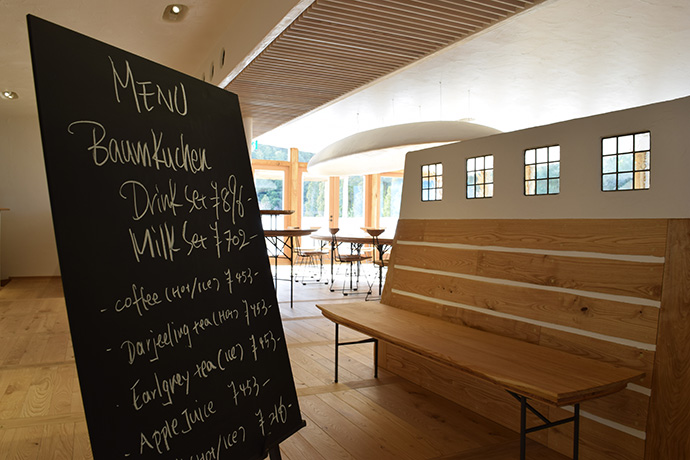 MENU
Baumkuchen
Drink Set ¥896-
Milk Set ¥702-
- coffee (HOT/ICE) ¥453-
- Darjeeling tea (HOT) ¥453-
- Earlgrey tea (ICE) ¥453-
- Apple Juice ¥453-
(HOT/ICE) ¥216-